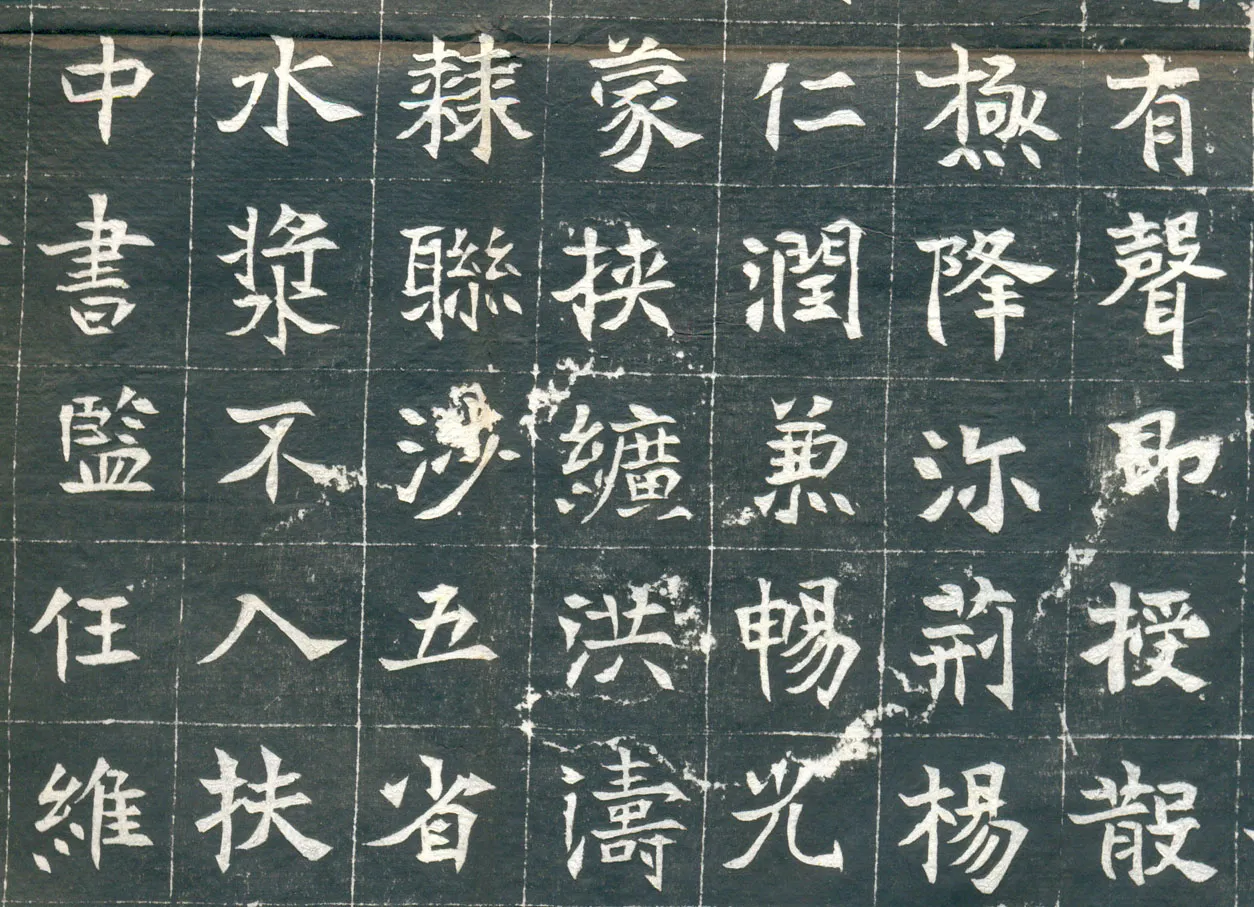 有聲即授散
極降沵荊楊
仁潤兼暢光
蒙挾纊洪濤
隸聯沙五省
水漿不入扶
中書監任維